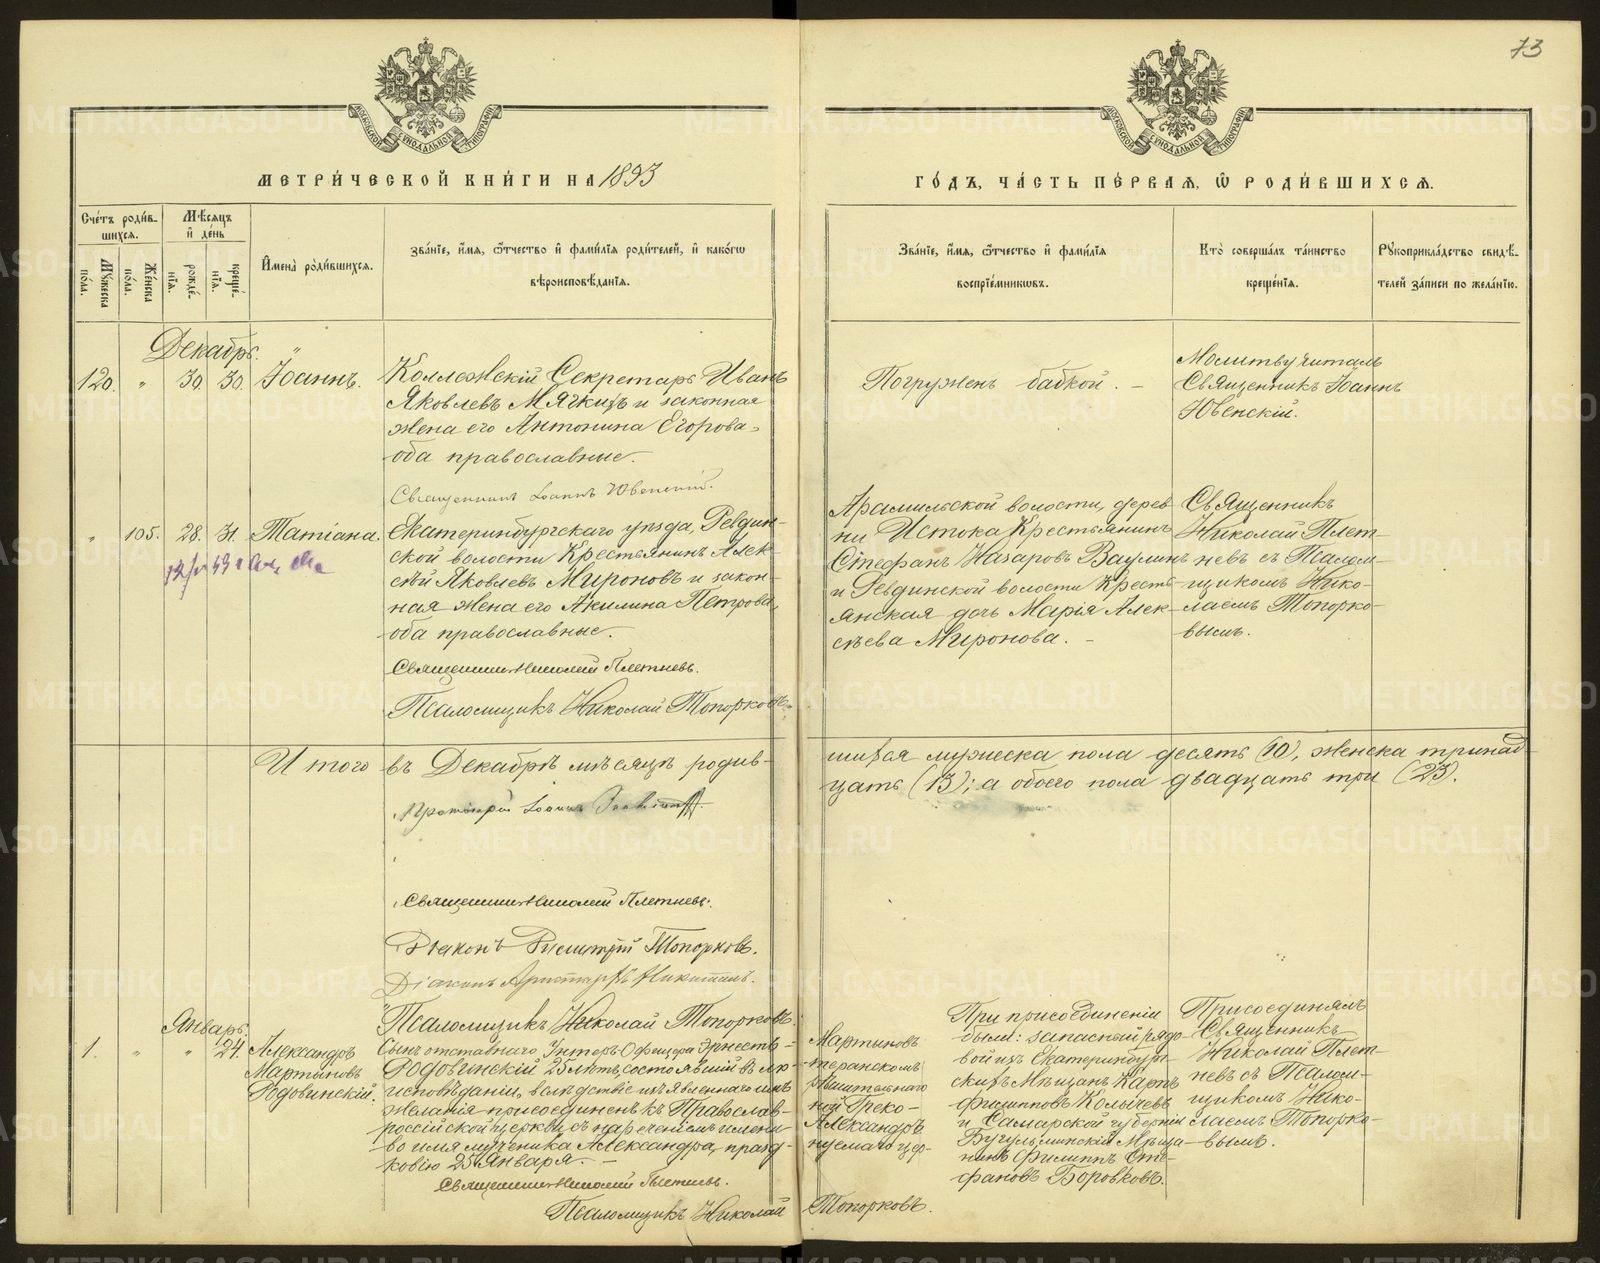 73
МОСКОВСКОЙ СѴНОДАЛЬНОЙ ТИПОГРАФІИ
МОСКОВСКОЙ СѴНОДАЛЬНОЙ ТИПОГРАФІИ
МЕТРИ́ЧЕСКОЙ КНИ́ГИ НА 1893
ГО́ДЪ, ЧА́СТЬ ПЕ́РВАЯ, Ѡ РОДИ́ВШИХСЯ.
Сче́тъ роди́в-
шихся.
Мужеска пола.
Же́нска по́ла.
Мѣ́сяцъ
и де́нь
рожде́-
нія.
креще́-
нія.
Имена̀ роди́вшихся.
Зва́ніе, и́мя, ѻ́тчество и фами́лія роди́телей, и како́гѡ
вѣроисповѣ́данія.
Зва́ніе, и́мя, ѻ́тчество и фами́лія
воспріе́мникѡвъ.
Кто̀ соверша́лъ та́инство
креще́нія.
Рꙋкоприкла́дство свидѣ́-
телей за́писи по жела́нію.
Декабрь.
120. " 30. 30. Іоаннъ.
Коллежскій Секретарь Иванъ
Яковлевъ Мягкихъ и законная
жена его Антонина Егорова,
оба православные.
Священникъ Іоаннъ Ювенскій.
Погруженъ бабкой. –
Молитву читалъ
Священникъ Іоаннъ
Ювенскій.
" 105. 28. 31. Татіана.
Екатеринбургскаго уѣзда, Ревдин-
ской волости Крестьянинъ Алек-
сѣй Яковлевъ Мироновъ и закон-
ная жена его Акилина Петрова,
оба православные.
Священникъ Николай Плетневъ.
Псаломщикъ Николай Топорковъ.
Арамильской волости, дерев
ни Истока Крестьянинъ
Стефанъ Назаровъ Ваулинъ
и Ревдинской волости Кресть-
янская дочь Марья Алек-
сѣева Миронова. –
Священникъ
Николай Плет-
невъ съ Псалом-
щикомъ Нико-
лаемъ Топорко-
вымъ.
Итого въ Декабрѣ мѣсяцѣ родив-
шихся мужеска пола десять (10), женска тринад-
цать (13); а обоего пола двадцать три (23).
Протоіерей Іоаннъ
Священникъ Николай Плетневъ.
Діаконъ Димитрій Топорковъ.
Діаконъ Аристархъ Никитинъ.
Псаломщикъ Николай Топорковъ.
Январь.
1. " " 24. Александръ
Мартыновъ
Родовинскій.
Сынъ отставнаго Унтеръ-Офицера Эрнестъ Мартыновъ
Родовинскій 25 лѣтъ, состоявшій въ лютеранскомъ
исповѣданіи, вслѣдствіе изъявленнаго имъ рѣшительнаго
желанія присоединенъ къ Православной Греко-
россійской церкви съ нареченіемъ имени Александръ
во имя мученика Александра, празднуемаго цер-
ковію 25 Января. –
Священникъ Николай Плетневъ.
Псаломщикъ Николай Топорковъ.
При присоединеніи
были: запасной рядо-
вой изъ Екатеринбург-
скихъ Мѣщанъ Карпъ
Филипповъ Колычевъ
и Самарской губерніи
Бугульминскій Мѣща-
нинъ Филиппъ Сте-
фановъ Боровковъ.
Присоединялъ
Священникъ
Николай Плет-
невъ съ Псалом-
щикомъ Нико-
лаемъ Топорко-
вымъ.
METRIKI.GASO-URAL.RU